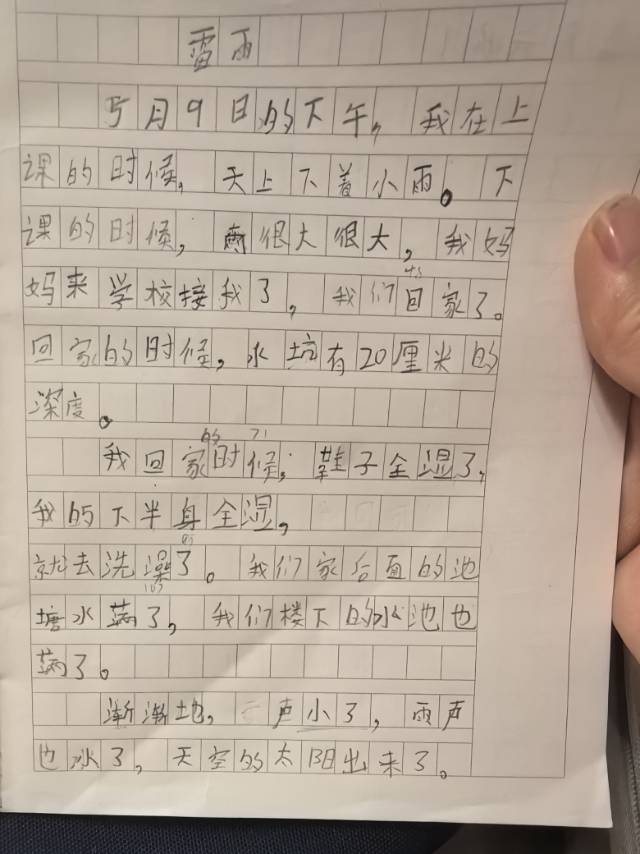 雷雨
5月9日的下午，我在上
课的时候，天上下着小雨。下
课的时候，雨很大很大，我妈
妈来学校接我了，我们回家了。
回家的时候，水坑有20厘米的
深度。
我回家的时候，鞋子全湿了，
我的下半身全湿，
就去洗澡了。我们家后面的池
塘水满了，我们楼下的水池也
满了。
渐渐地，声小了，雨声
也小了，天空的太阳出来了。